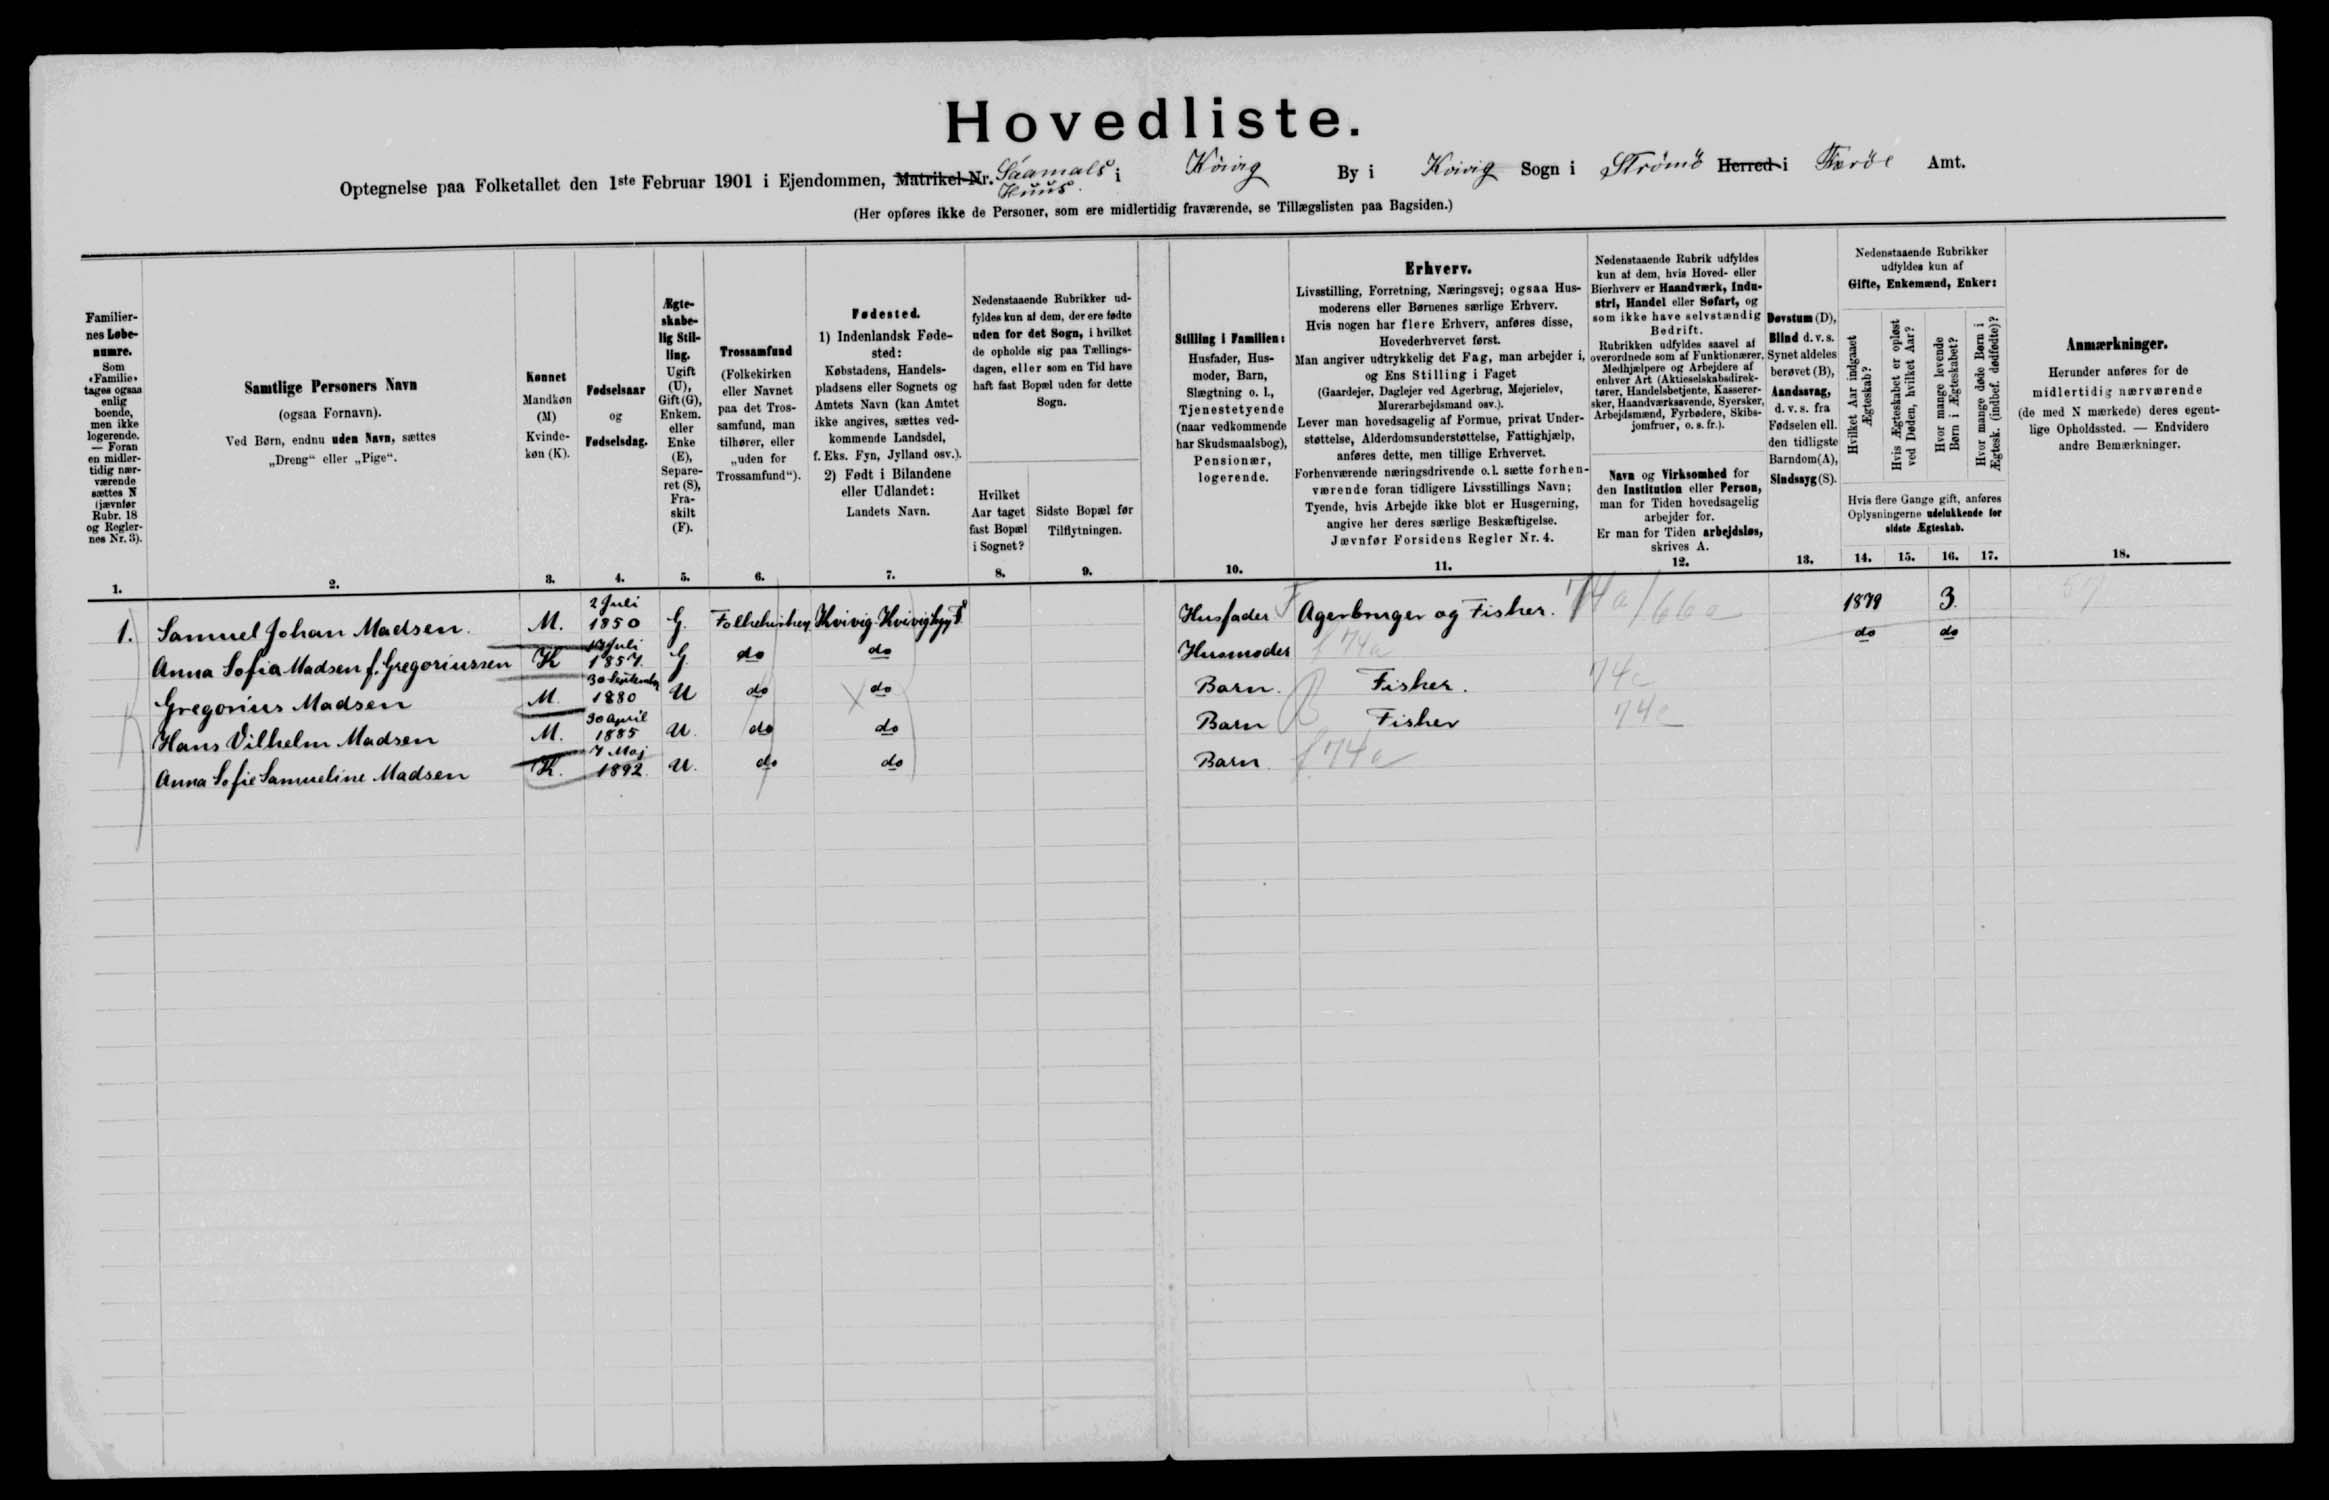 Hovedliste.
Optegnelse paa Folketallet den 1ste Februar 1901 i Ejendommen, Matrikel-Nr. Saamals Huus. i Kvivig By i Kvivig Sogn i Strömö Herred i Færöe Amt.
(Her opføres ikke de Personer, som ere midlertidig fraværende, se Tillægslisten paa Bagsiden.)
Familier-
nes Løbe-
numre.
Som
«Familie»
tages ogsaa
enlig
boende,
men ikke
logerende.
— Foran
en midler-
tidig nær-
værende
sættes N
(jævnfør
Rubr. 18
og Regler-
nes Nr. 3).
1.
Samtlige Personers Navn
(ogsaa Fornavn).
Ved Børn, endnu uden Navn, sættes
„Dreng“ eller „Pige“.
2.
Kønnet
Mandkøn
(M)
Kvinde-
køn (K).
3.
Fødselsaar
og
Fødselsdag.
4.
Ægte-
skabe-
lig Stil-
ling.
Ugift
(U),
Gift (G),
Enkem.
eller
Enke
(E),
Separe-
ret (S),
Fra-
skilt
(F).
5.
Trossamfund
(Folkekirken
eller Navnet
paa det Tros-
samfund, man
tilhører, eller
„uden for
Trossamfund“).
6.
Fødested.
1) Indenlandsk Føde-
sted:
Købstadens, Handels-
pladsens eller Sognets og
Amtets Navn (kan Amtet
ikke angives, sættes ved-
kommende Landsdel,
f. Eks. Fyn, Jylland osv.).
2) Født i Bilandene
eller Udlandet:
Landets Navn.
7.
Nedenstaaende Rubrikker ud-
fyldes kun af dem, der ere fødte
uden for det Sogn, i hvilket
de opholde sig paa Tællings-
dagen, eller som en Tid have
haft fast Bopæl uden for dette
Sogn.
Hvilket
Aar taget
fast Bopæl
i Sognet?
8.
Sidste Bopæl før
Tilflytningen.
9.
Stilling i Familien:
Husfader, Hus-
moder, Barn,
Slægtning o. l.,
Tjenestetyende
(naar vedkommende
har Skudsmaalsbog),
Pensionær,
logerende.
10.
Erhverv.
Livsstilling, Forretning, Næringsvej; ogsaa Hus-
moderens eller Børnenes særlige Erhverv.
Hvis nogen har flere Erhverv, anføres disse,
Hovederhvervet først.
Man angiver udtrykkelig det Fag, man arbejder i,
og Ens Stilling i Faget
(Gaardejer, Daglejer ved Agerbrug, Mejerielev,
Murerarbejdsmand osv.).
Lever man hovedsagelig af Formue, privat Under-
støttelse, Alderdomsunderstøttelse, Fattighjælp,
anføres dette, men tillige Erhvervet.
Forhenværende næringsdrivende o. l. sætte forhen-
værende foran tidligere Livsstillings Navn;
Tyende, hvis Arbejde ikke blot er Husgerning,
angive her deres særlige Beskæftigelse.
Jævnfør Forsidens Regler Nr. 4.
11.
Nedenstaaende Rubrik udfyldes
kun af dem, hvis Hoved- eller
Bierhverv er Haandværk, Indu-
stri, Handel eller Søfart, og
som ikke have selvstændig
Bedrift.
Rubrikken udfyldes saavel af
overordnede som af Funktionærer,
Medhjælpere og Arbejdere af
enhver Art (Aktieselskabsdirek-
tører, Handelsbetjente, Kasserer-
sker, Haandværkssvende, Syersker,
Arbejdsmænd, Fyrbødere, Skibs-
jomfruer, o. s. fr.).
Navn og Virksomhed for
den Institution eller Person,
man for Tiden hovedsagelig
arbejder for.
Er man for Tiden arbejdsløs,
skrives A.
12.
Døvstum (D),
Blind d. v. s.
Synet aldeles
berøvet (B),
Aandssvag,
d. v. s. fra
Fødselen ell.
den tidligste
Barndom (A),
Sindssyg (S).
13.
Nedenstaaende Rubrikker
udfyldes kun af
Gifte, Enkemænd, Enker:
Hvilket Aar indgaaet
Ægteskab?
Hvis Ægteskabet er opløst
ved Døden, hvilket Aar?
Hvor mange levende
Børn i Ægteskabet?
Hvor mange døde Børn i
Ægtesk. (indbef. dødfødte)?
Hvis flere Gange gift, anføres
Oplysningerne udelukkende for
sidste Ægteskab.
14. 15. 16. 17.
Anmærkninger.
Herunder anføres for de
midlertidig nærværende
(de med N mærkede) deres egent-
lige Opholdssted. — Endvidere
andre Bemærkninger.
18.
1. Samuel Johan Madsen. M. 2 Juli 1850 G. Folkekirken Kvivig Husfader F Agerbruger og Fisker. 74a/66a 1879 3. 57
Anna Sofia Madsen f. Gregoriussen K Juli 1857. G. do do Husmoder f 74a do do
Gregorius Madsen M. 30 September 1880 U do do Barn. Fisker. 74c
Hans Vilhelm Madsen M. 30 April 1885 U. do do Barn Fisker 74c
Anna Sofie Samueline Madsen K. 7 Maj 1892. U. do do Barn. f 74a